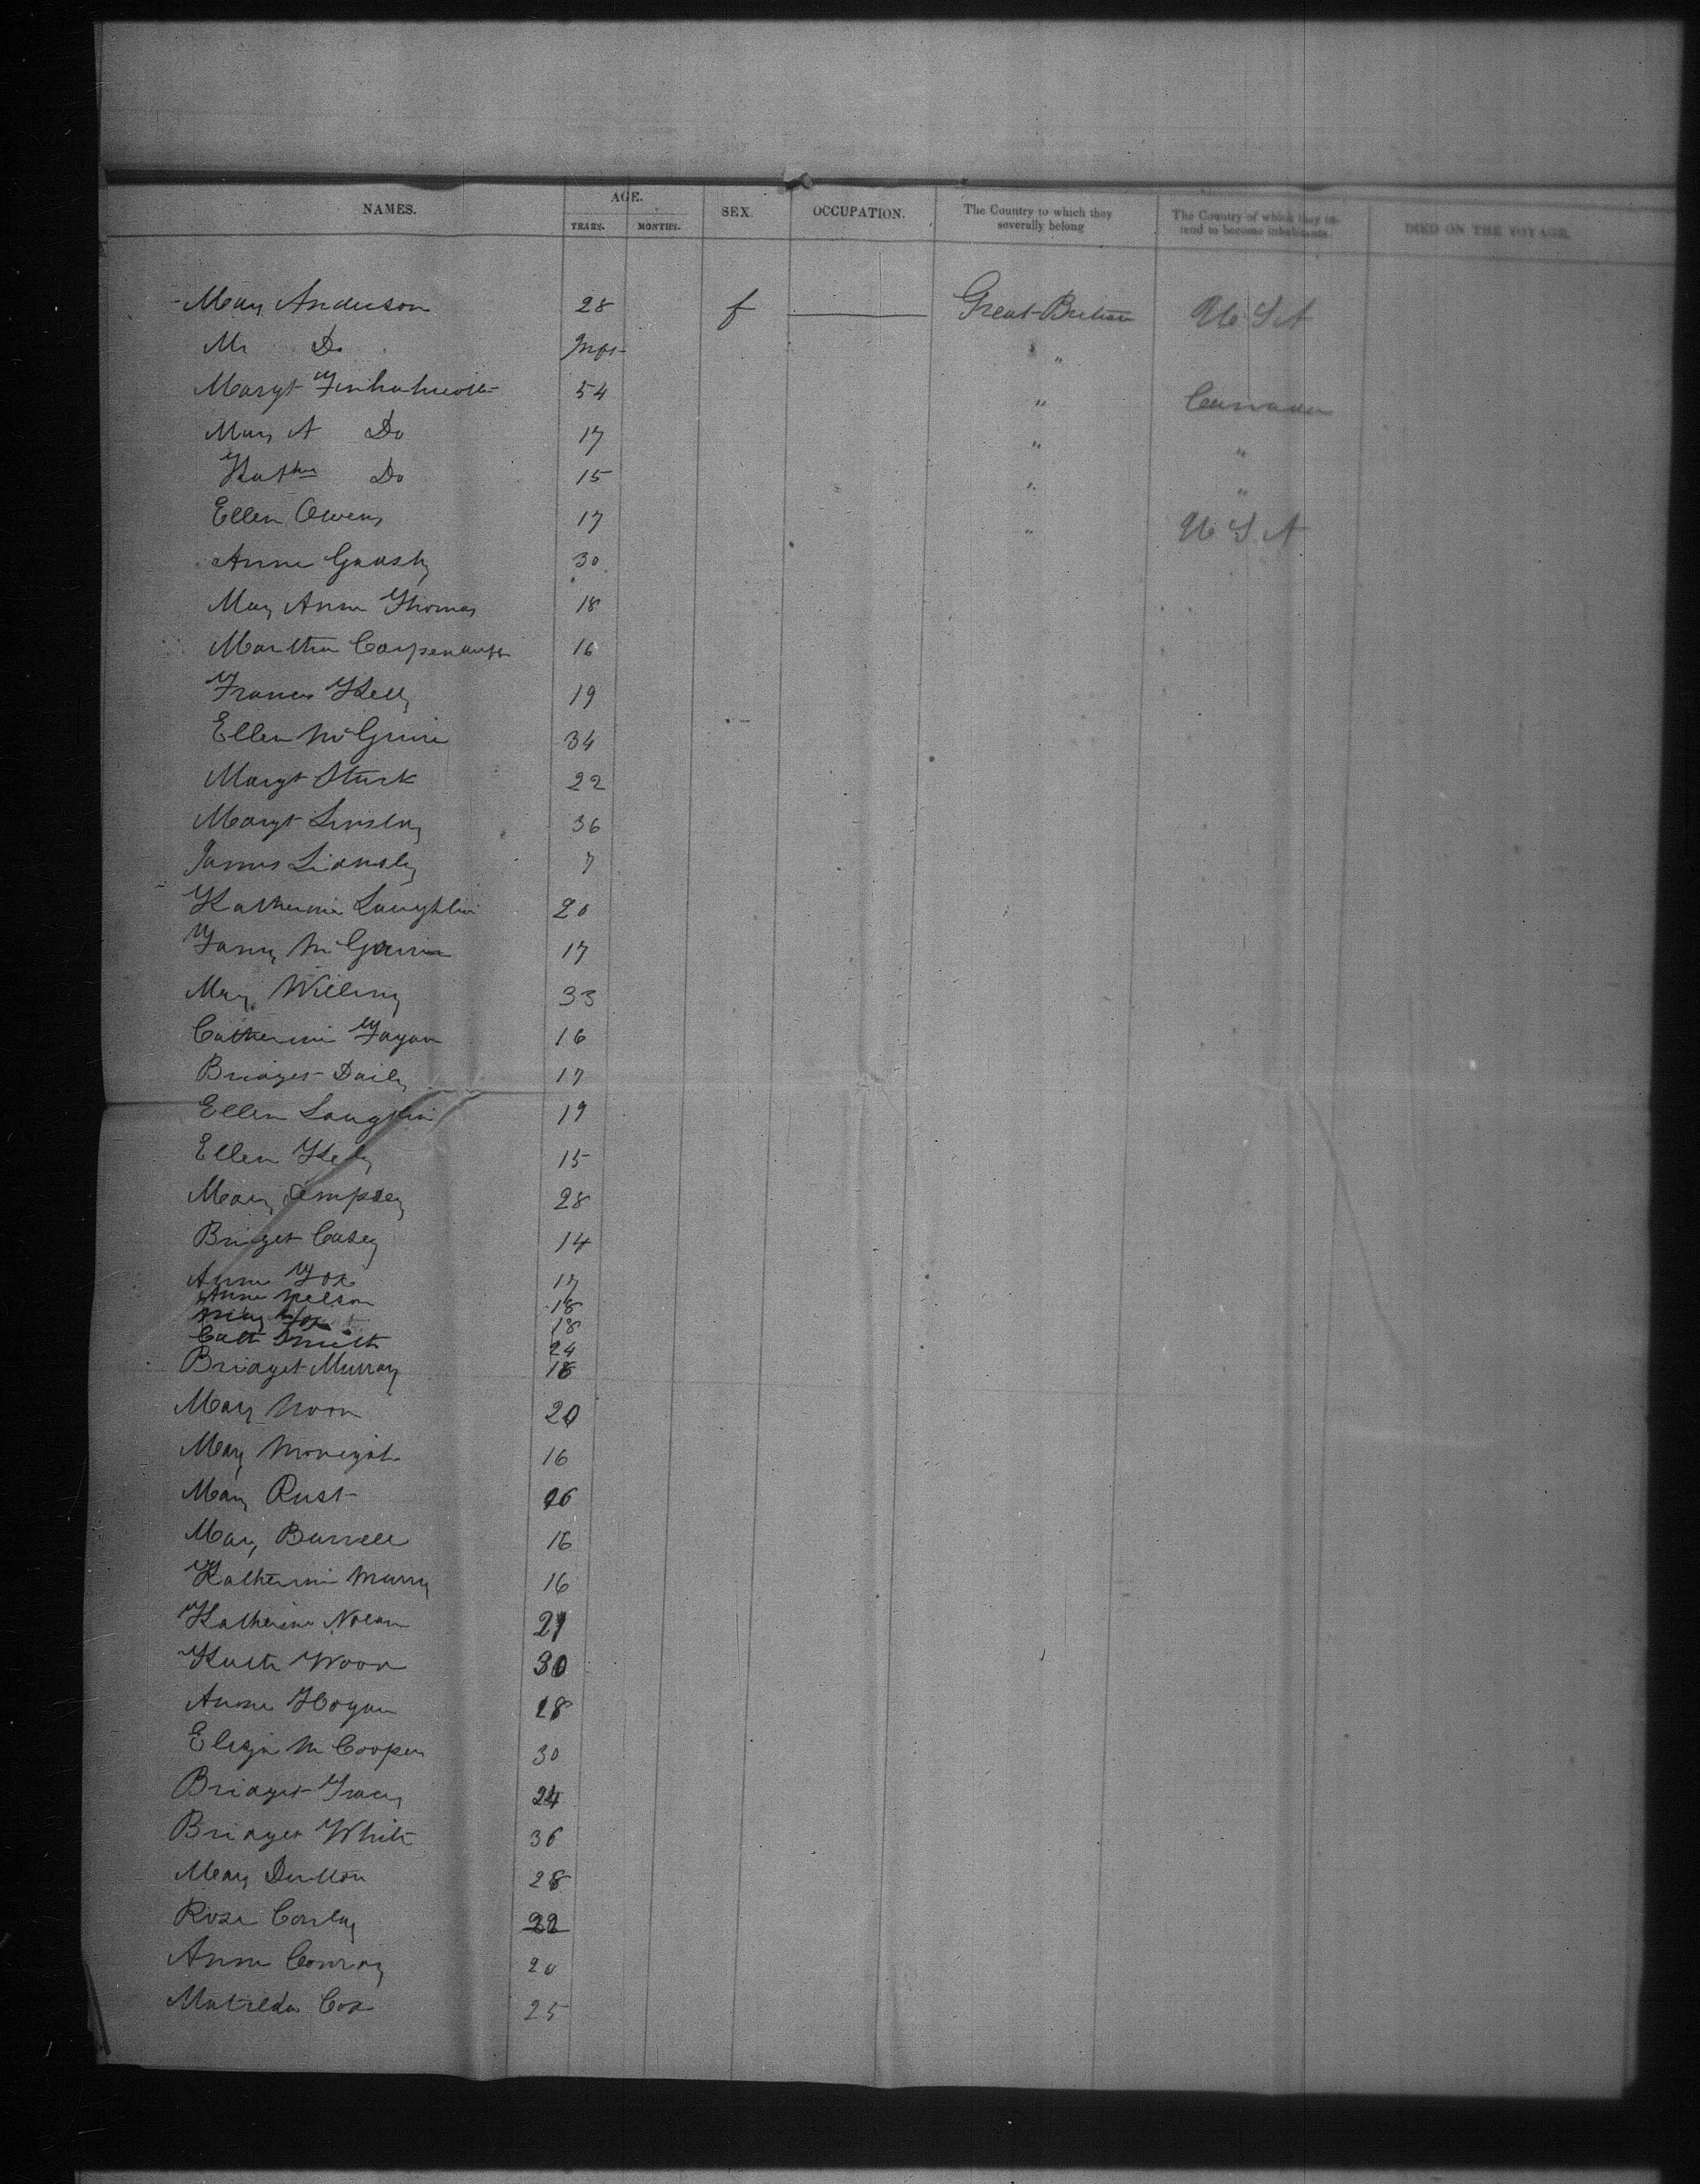 NAMES. AGE. SEX. OCCUPATION. The Country to which they severally belong The Country of which they intend to become inhabitants DIED ON THE VOYAGE.
YEARS. MONTHS.
Mary Anderson 28 f Great Britain U S A
Mr Do Inft "
Margt 54 " Canada
Mary A Do 17 " "
Kathn Do 15 " "
Ellen Owens 17 " U S A
Anne 30
Mary Anne Thomas 18
Martha 16
Frances Kelly 19
Ellen McGuire 34
Margt Sturk 22
Margt Linsley 36
James 7
Katherine Laughlin 20
Fanny 17
Mary Willing 33
Catherine Fagan 16
Bridget Daily 17
Ellen Laughlin 19
Ellen Kelly 15
Mary Dempsey 28
Bridget Casey 14
Anne Fox 17
Anne Nelson 18
Mary Fox 18
Cath Smith 24
Bridget Murray 18
Mary Noon 20
Mary 16
Mary Rust 26
Mary Burrell 16
Katherine Murry 16
Katherine Nolan 21
Kate Wood 30
Anne Hogan 18
Eliza M Cooper 30
Bridget Tracy 24
Bridget White 36
Mary 28
Rose Conley 22
Anne Conroy 20
Matilda Cox 25